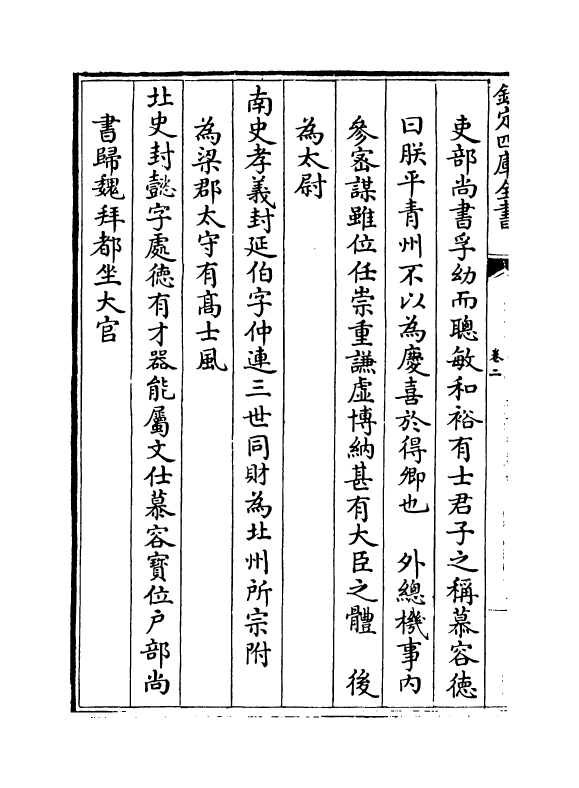 欽定四庫全書
卷二
吏部尚書孚幼而聰敏和裕有士君子之稱慕容徳
曰朕平青州不以為慶喜於得卿也　外總機事内
參宻謀雖位任崇重謙虚博納甚有大臣之體　後
為太尉
南史孝義封延伯字仲連三世同財為北州所宗附
為梁郡太守有髙士風
北史封懿字處徳有才器能屬文仕慕容寳位户部尚
書歸魏拜都坐大官